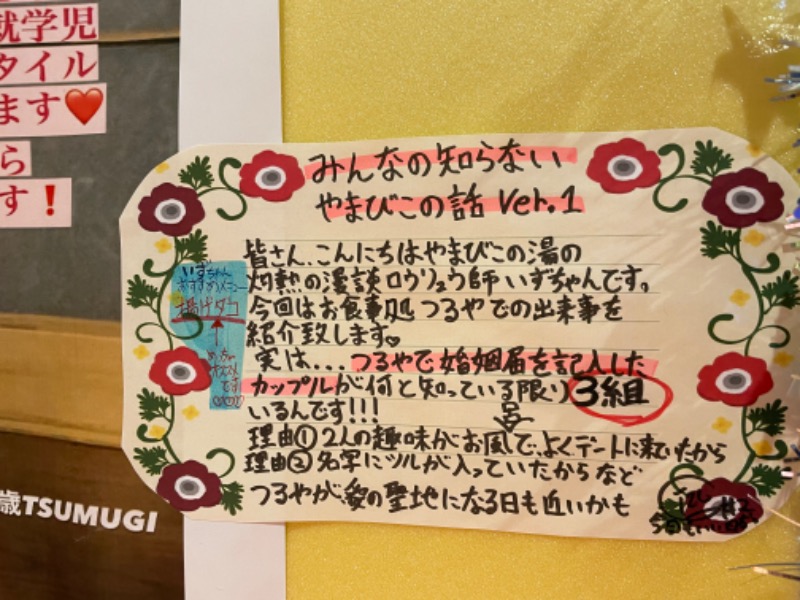 就学児
タイル
ます❤
ら
す❗
歳TSUMUGI
みんなの知らない
やまびこの話 Ver.1
皆さん、こんにちはやまびこの湯の
灼熱の漫談ロウリュウ師 いずちゃんです。
今回はお食事処 つるやでの出来事を
紹介致します。
実は...つるやで婚姻届を記入した
カップルが何と知っている限り3組
いるんです!!!
理由①2人の趣味がお風呂で、よくデートに来ていたから
理由②名字にツルが入っていたからなど
つるやが、愛の聖地になる日も近いかも
いずちゃん
おすすめメニュー
揚げダコ
↑
めっちゃ
オススメ
です
♡♡♡